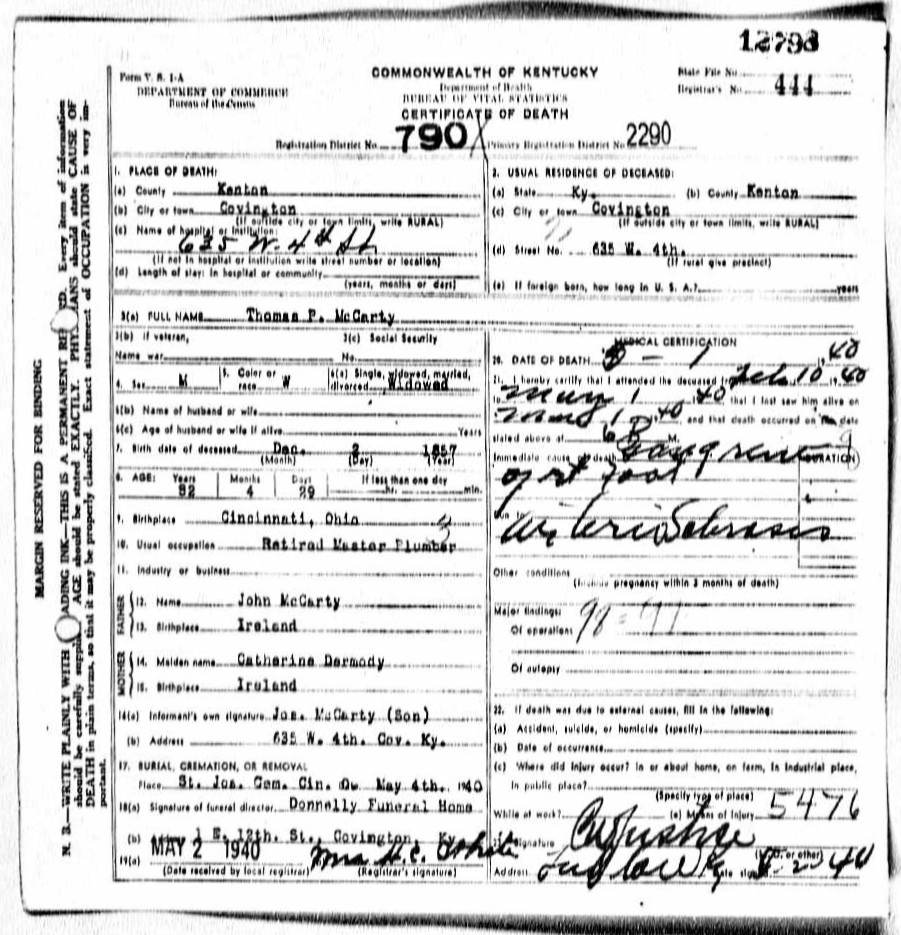 12798
Form V. S. 1-A
DEPARTMENT OF COMMERCE
Bureau of the Census
COMMONWEALTH OF KENTUCKY
Department of Health
BUREAU OF VITAL STATISTICS
CERTIFICATE OF DEATH
State File No.
Registrar's No. 444
Registration District No. 790
Primary Registration District No. 2290
MARGIN RESERVED FOR BINDING
N. B.—WRITE PLAINLY WITH ADING INK—THIS IS A PERMANENT RE RD. Every item of information
should be carefully supplie AGE should be stated EXACTLY. PHYS ANS should state CAUSE OF
DEATH in plain terms, so that it may be properly classified. Exact statement of OCCUPATION is very im-
portant.
1. PLACE OF DEATH:
(a) County Kenton
(b) City or town Covington
(If outside city or town limits, write RURAL)
(c) Name of hospital or institution:
635 W. 4th St
(If not in hospital or institution write street number or location)
(d) Length of stay: In hospital or community
(years, months or days)
2. USUAL RESIDENCE OF DECEASED:
(a) State Ky. (b) County Kenton
(c) City or town Covington
(If outside city or town limits, write RURAL)
(d) Street No. 635 W. 4th.
(If rural give precinct)
(e) If foreign born, how long in U. S. A.? years
3(a) FULL NAME Thomas P. McCarty
3(b) If veteran, 3(c) Social Security
Name war No.
4. Sex M 5. Color or race W 6(a) Single, widowed, married, divorced Widowed
6(b) Name of husband or wife
6(c) Age of husband or wife if alive Years
7. Birth date of deceased Dec. 2 1857
(Month) (Day) (Year)
8. AGE: Years Months Days If less than one day
82 4 29 hr. min.
9. Birthplace Cincinnati, Ohio
10. Usual occupation Retired Master Plumber
11. Industry or business
FATHER
12. Name John McCarty
13. Birthplace Ireland
MOTHER
14. Maiden name Catherine Dermody
15. Birthplace Ireland
16(a) Informant's own signature Jos. McCarty (Son)
(b) Address 635 W. 4th. Cov. Ky.
17. BURIAL, CREMATION, OR REMOVAL
Place St. Jos. Cem. Cin. O. May 4th. 1940
18(a) Signature of funeral director Donnelly Funeral Home
(b) 1 E. 12th. St., Covington, Ky.
19(a) MAY 2 1940 Mrs H.C. White
(Date received by local registrar) (Registrar's signature)
MEDICAL CERTIFICATION
20. DATE OF DEATH 5 - 1 1940
21. I hereby certify that I attended the deceased from Feb 10 1940
to May 1 40 that I last saw him alive on
May 1 40, and that death occurred on the date
stated above at 6 P M.
Immediate cause of death Gangrene DURATION
of rt foot
Due to
Arterio Sclerosis
Other conditions
(Include pregnancy within 3 months of death)
Major findings: 98 = 97
Of operations
Of autopsy
22. If death was due to external causes, fill in the following:
(a) Accident, suicide, or homicide (specify)
(b) Date of occurrence
(c) Where did injury occur? In or about home, on farm, in industrial place,
in public place?
(Specify type of place) 5476
While at work? (e) Means of Injury
Signature Justice
(M.D. or other)
Address Ludlow Ky Date signed 5-2-40